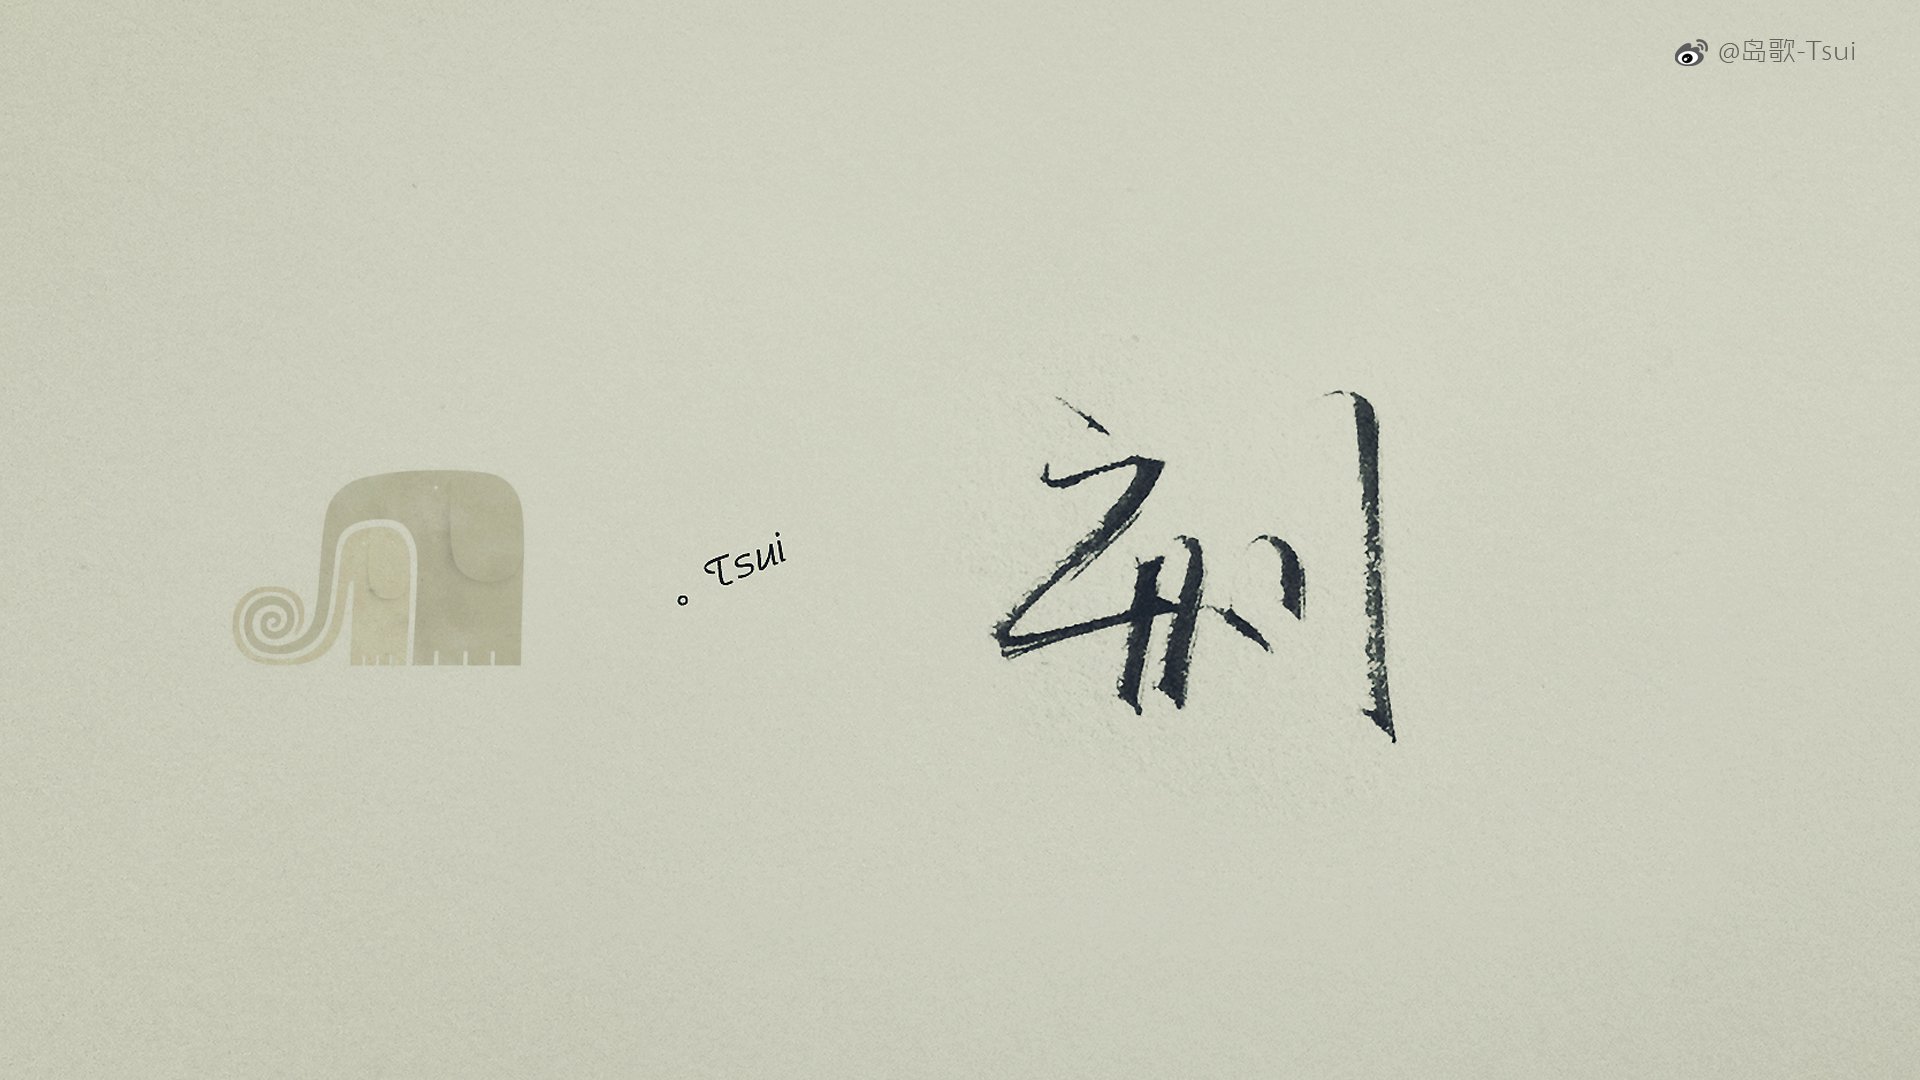 @岛歌-Tsui
刻
Tsui